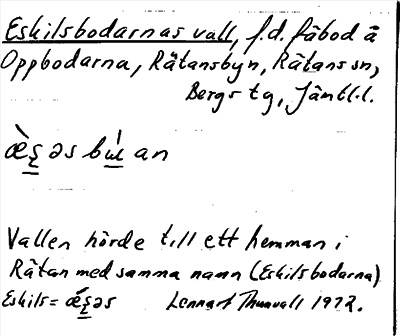 Eskilsbodarnas vall, f.d. fäbod å
Oppbodarna, Rätansbyn, Rätans sn,
Bergs tg, Jämtl.l.
əs an
Vallen hörde till ett hemman i
Rätan med samma namn (Eskilsbodarna)
Eskils= Lennart Thunvall 1972.